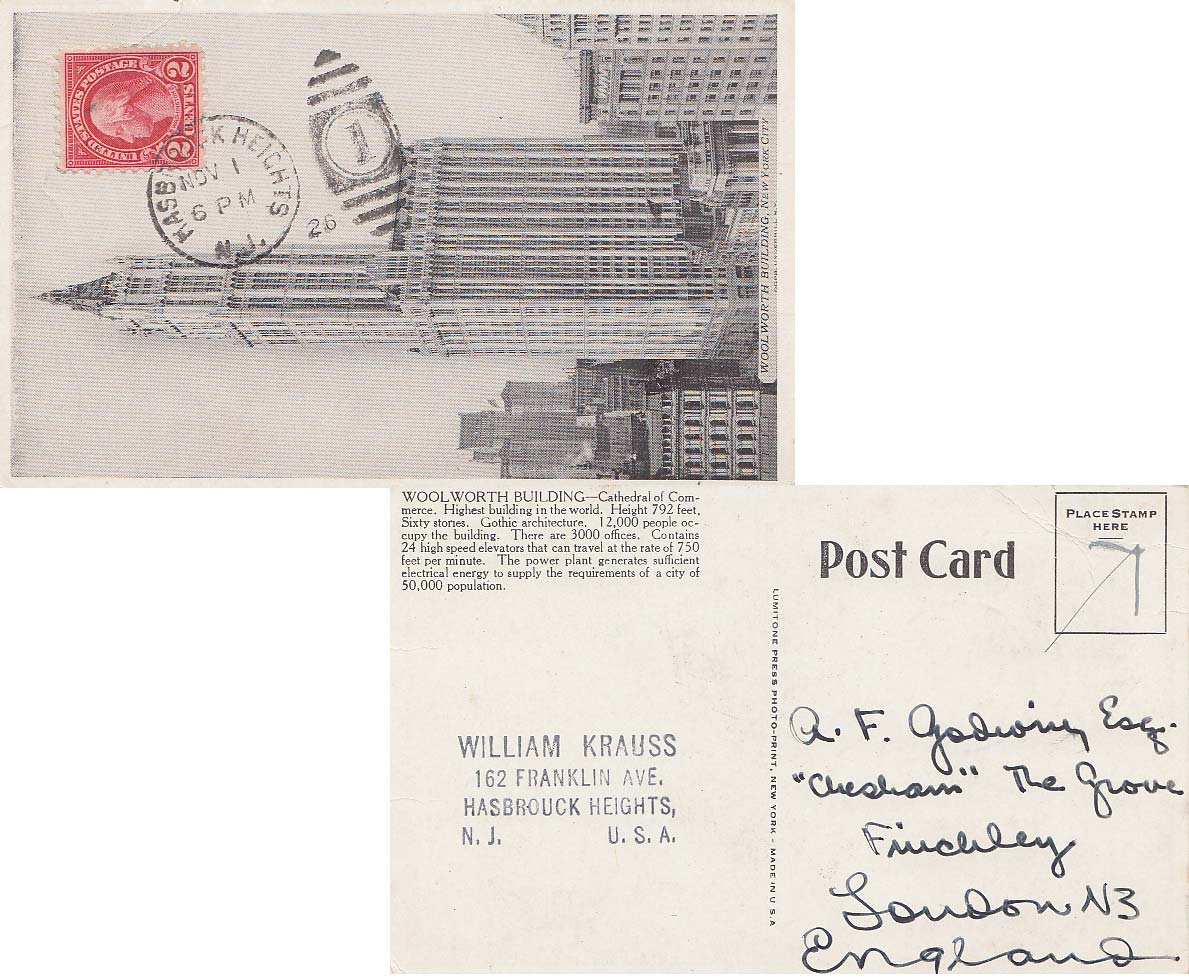 UNITED STATES POSTAGE
2 CENTS 2
HASBROUCK HEIGHTS
NOV 1
6 PM
N.J.
26
1
WOOLWORTH BUILDING, NEW YORK CITY
WOOLWORTH BUILDING—Cathedral of Com-
merce. Highest building in the world. Height 792 feet,
Sixty stories. Gothic architecture. 12,000 people oc-
cupy the building. There are 3000 offices. Contains
24 high speed elevators that can travel at the rate of 750
feet per minute. The power plant generates sufficient
electrical energy to supply the requirements of a city of
50,000 population.
WILLIAM KRAUSS
162 FRANKLIN AVE.
HASBROUCK HEIGHTS,
N. J. U. S. A.
LUMITONE PRESS PHOTO-PRINT, NEW YORK - MADE IN U.S.A
Post Card
PLACE STAMP
HERE
A. F. Godwin, Esq.
"Chesham" The Grove
Finchley
London N3
England